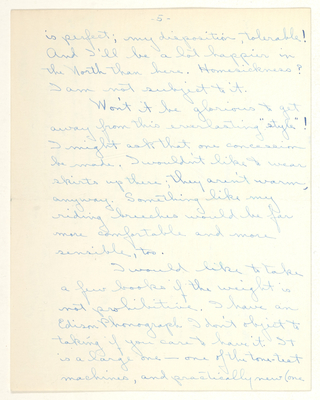 -5-
is perfect; my disposition, tolerable!
And I'll be a lot happier in
the North than here. Homesickness?
I am not subject to it.
Won't it be glorious to get
away from this everlasting "style"!
I might ask that one concession
be made. I wouldn't like to wear
skirts up there; they aren't warm,
anyway. Something like my
riding breeches would be far
more comfortable and more
sensible, too.
I would like to take
a few books if the weight is
not prohibitive. I have an
Edison Phonograph I don't object to
taking if you care to have it. It
is a large one — one of the tone-test
machines, and practically new (one